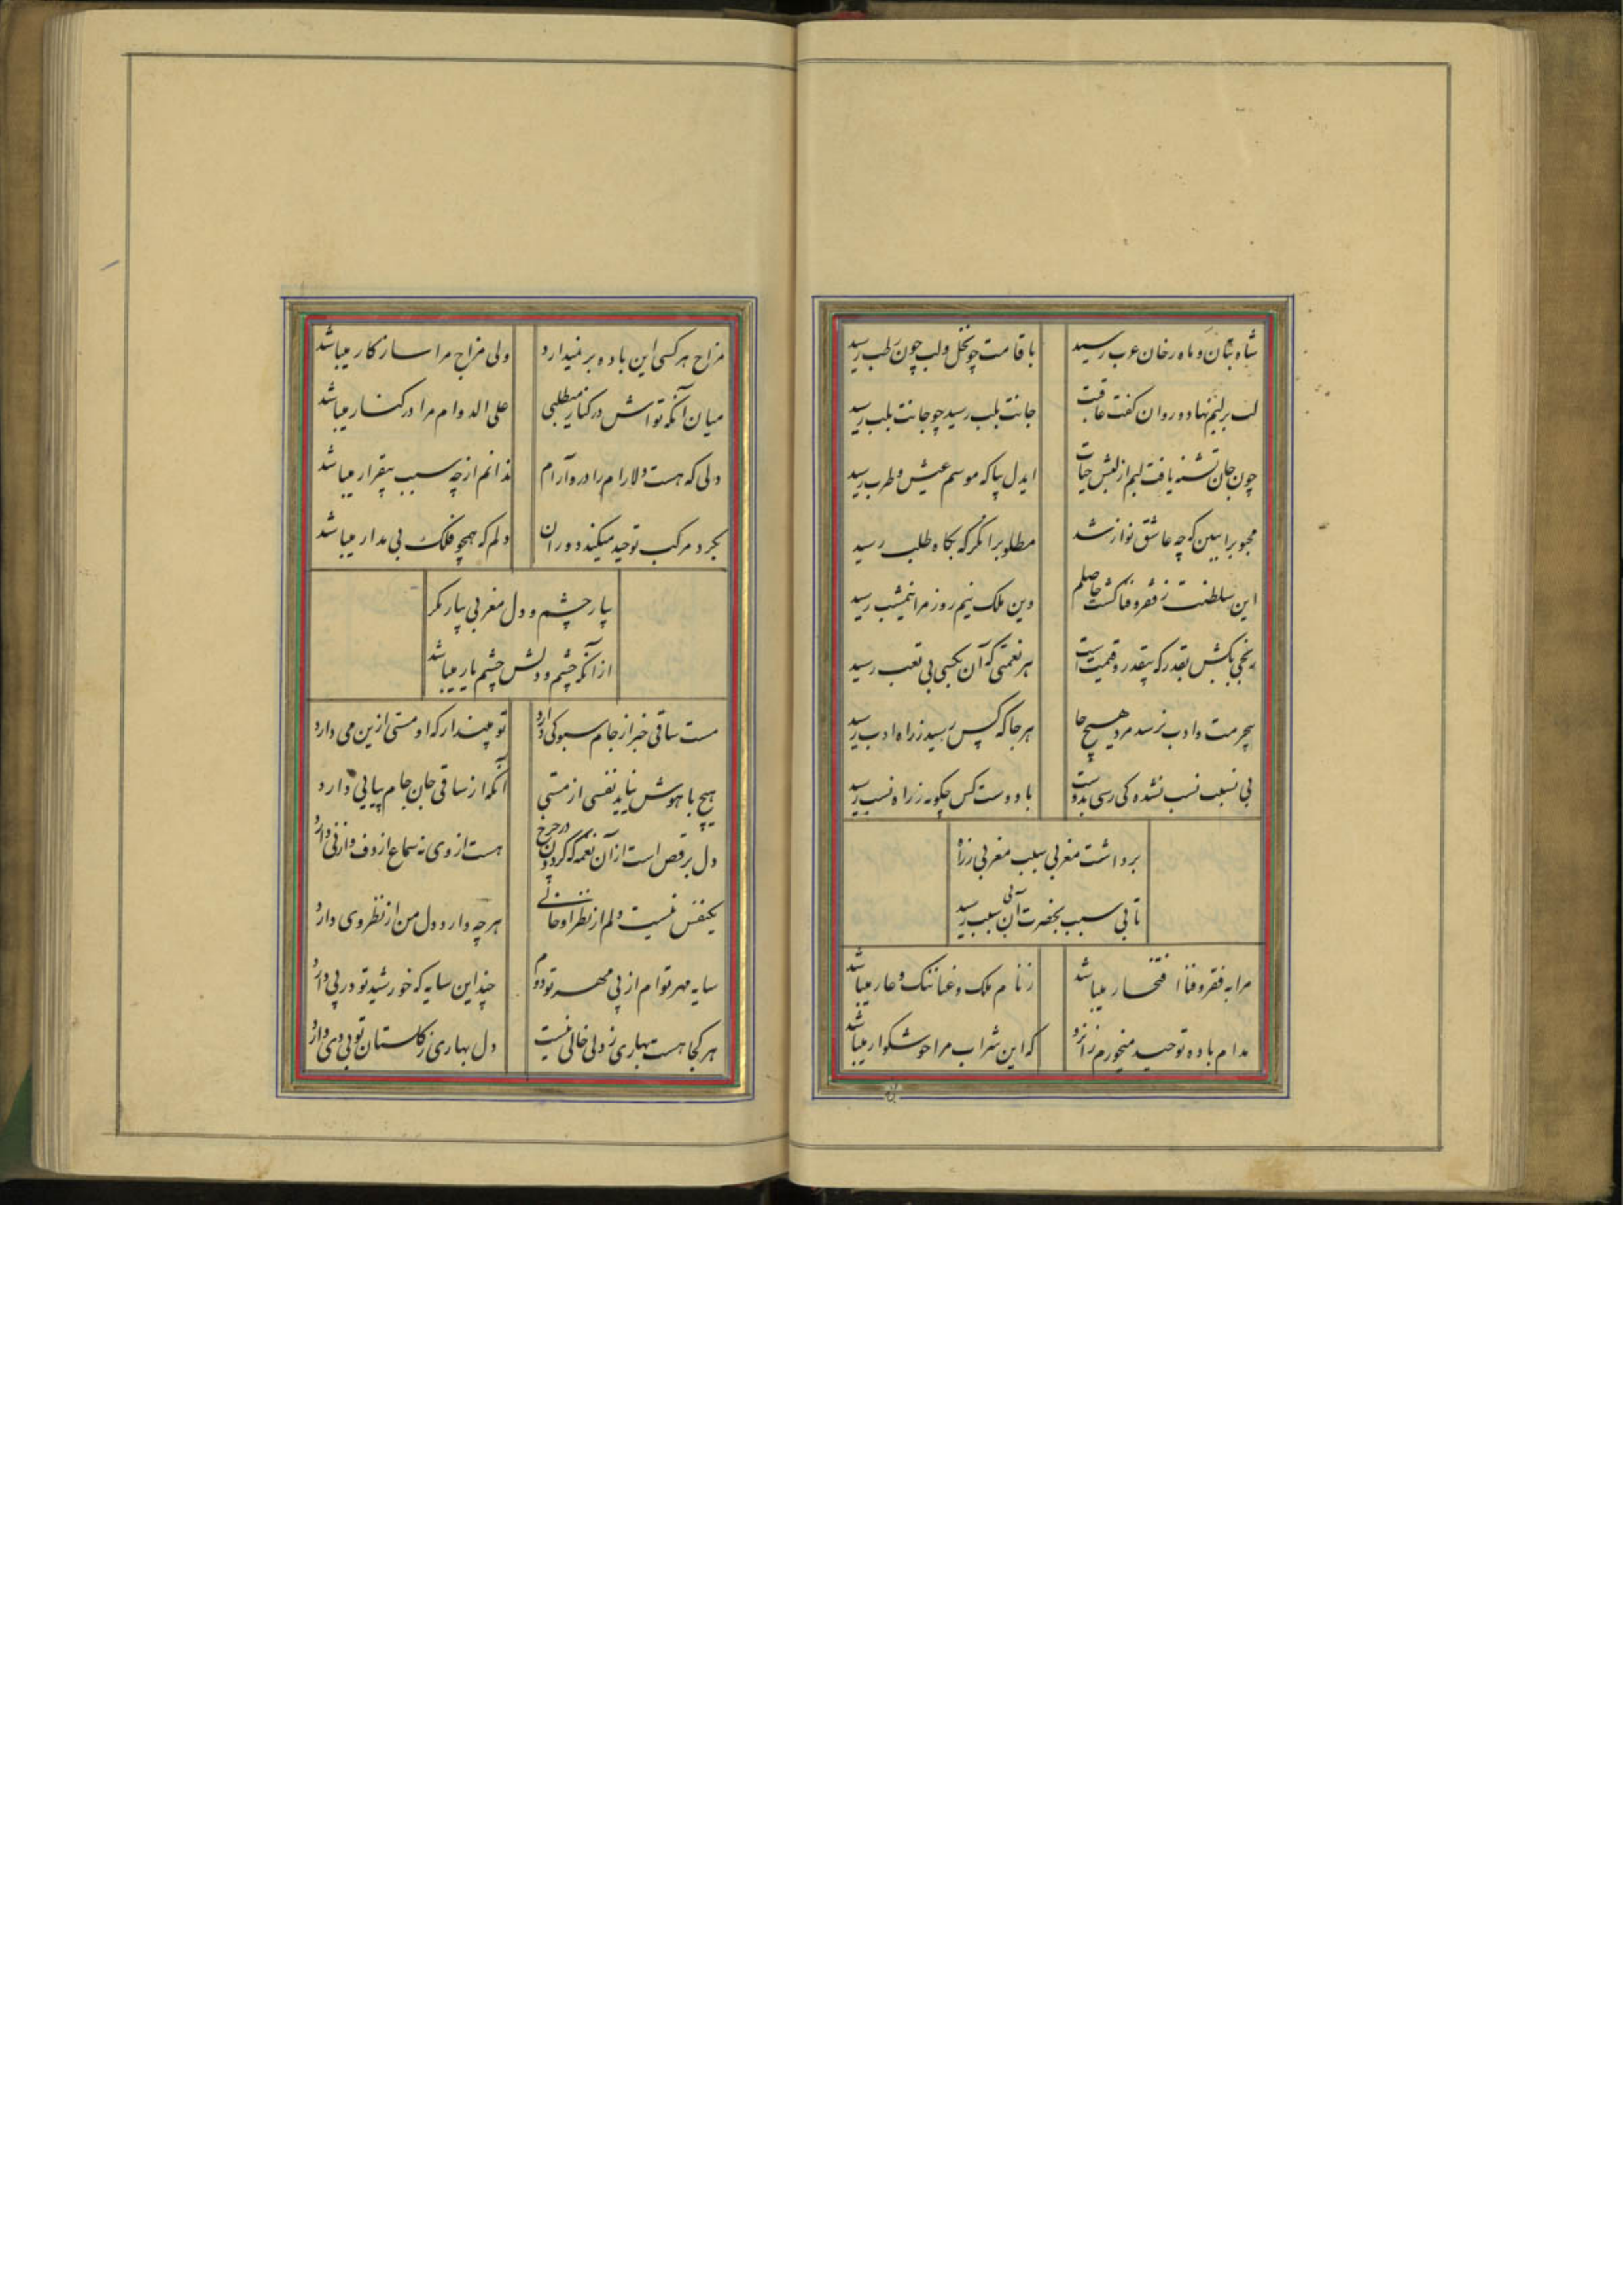 شاه بتان و ماه رخان عرب رسید
با قامت چو نخل و لب چون رطب رسید
لب بر لبم نهاد و روان گفت عاقبت
جانت بلب رسید چو جانت بلب رسید
چون جان تشنه یافت لبم از لبش حیات
ایدل بیا که موسم عیش و طرب رسید
محبوبرا ببین که چه عاشق نواز شد
مطلوبرا نگر که بگاه طلب رسید
این سلطنت ز فقر و فنا گشت حاصلم
وین ملک نیم روز مرا نیمشب رسید
رنجی بکش بقدر که بیقدر و قیمت است
هر نعمتی که آن بکسی بی تعب رسید
بیحرمت و ادب نرسد مرد هیچ جا
هر جا که کس رسید ز راه ادب رسید
بی نسبت نسب نشده کی رسی بدوست
با دوست کس چگونه ز راه نسب رسید
برداشت مغربی سبب مغربی ز راه
تا بی سبب بحضرت آن بی سبب رسید
مرا به فقر و فنا افتخار میباشد
ز نام ملک و غنا ننگ و عار میباشد
مدام باده توحید میخورم زانرو
که این شراب مرا خوشگوار میباشد
مزاج هر کسی این باده بر نمیدارد
ولی مزاج مرا سازکار میباشد
میان آنکه تواش در کنار میطلبی
علی الدوام مرا در کنار میباشد
دلی که هست دلارام را درو آرام
ندانم از چه سبب بیقرار میباشد
بگرد مرکب توحید میکند دوران
دلم که همچو فلک بی مدار میباشد
بیار چشم و دل مغربی بیار نگر
از آنکه چشم و دلش چشم یار میباشد
مست ساقی خبر از جام و سبو کی دارد
تو مپندار که او مستی ازین می دارد
هیچ با هوش نیاید نفسی از مستی
آنکه از ساقی جان جام پیاپی دارد
دل برقص است از آن نغمه که گردون در چرخ
هست از وی نه سماع از دف و از نی دارد
یکنفس نیست دلم از نظر او خالی
هر چه دارد دل من از نظر وی دارد
سایه مهر توام از پی مهر تو دوم
چند این سایه که خورشید تو در پی دارد
هر کجا هست بهاری ز دلی خالی نیست
دل بهاری ز گلستان تو بی دی دارد